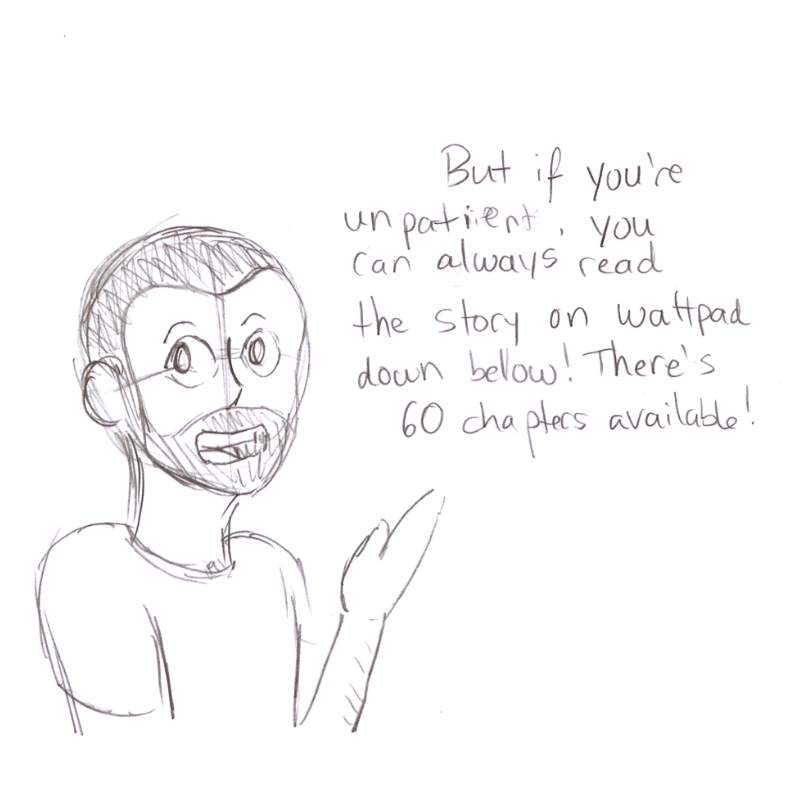 But if you're
unpatiient, you
can always read
the story on wattpad
down below! There's
60 chapters available!